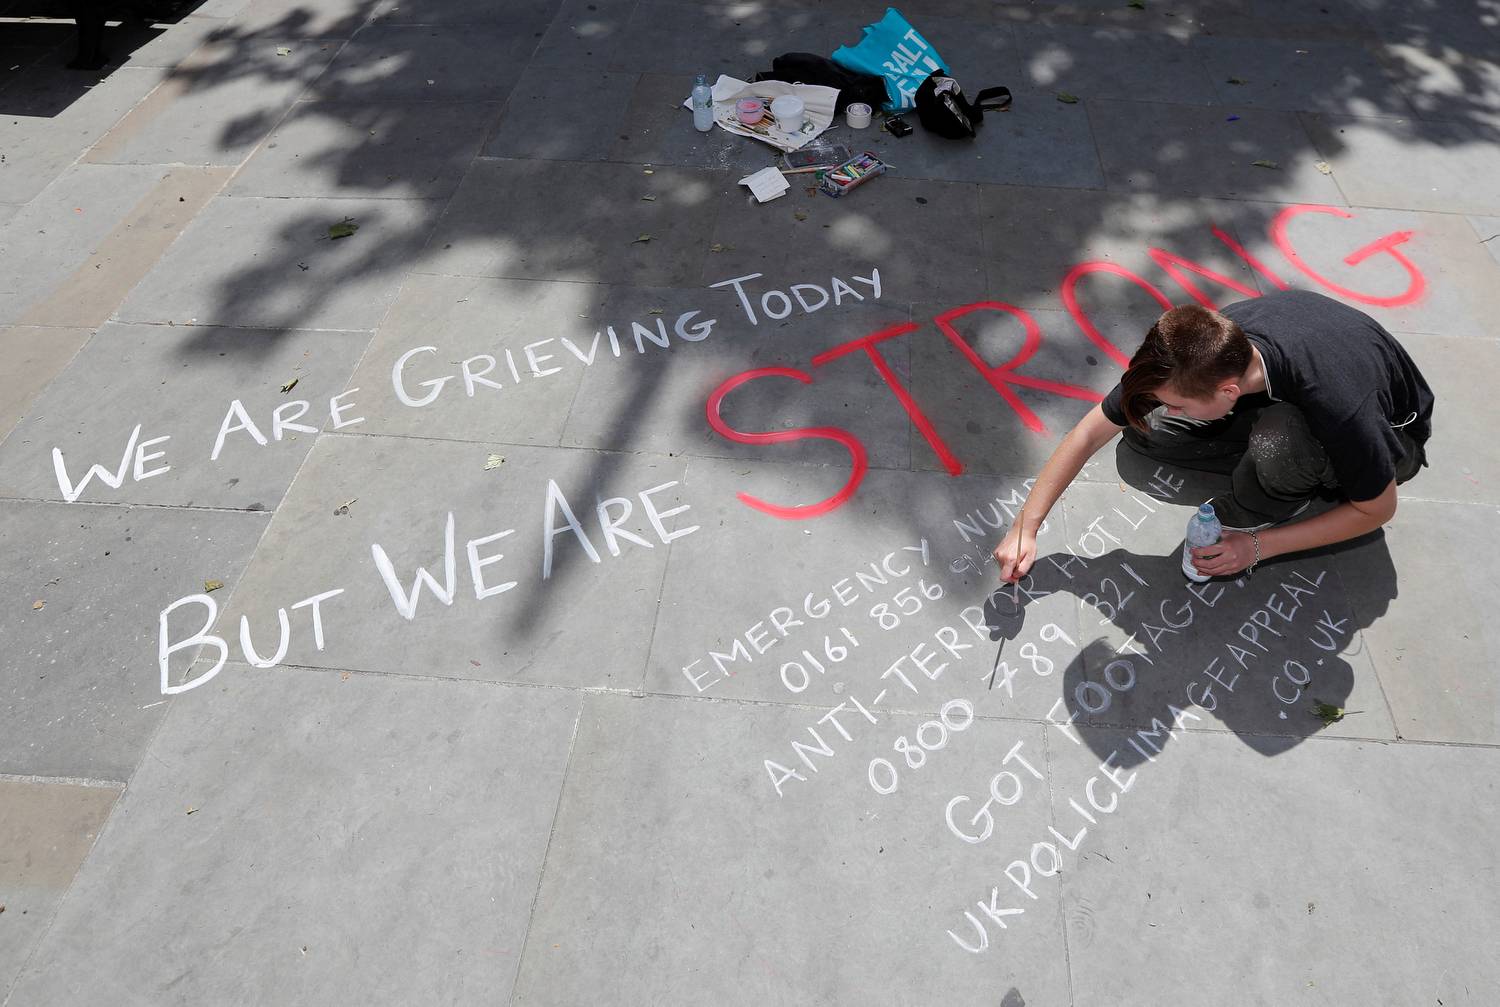 WE ARE GRIEVING TODAY
BUT WE ARE STRONG
EMERGENCY
0161 856
ANTI-TERROR HOTLINE
0800 789 321
GOT FOOTAGE?
UKPOLICEIMAGEAPPEAL
.CO.UK